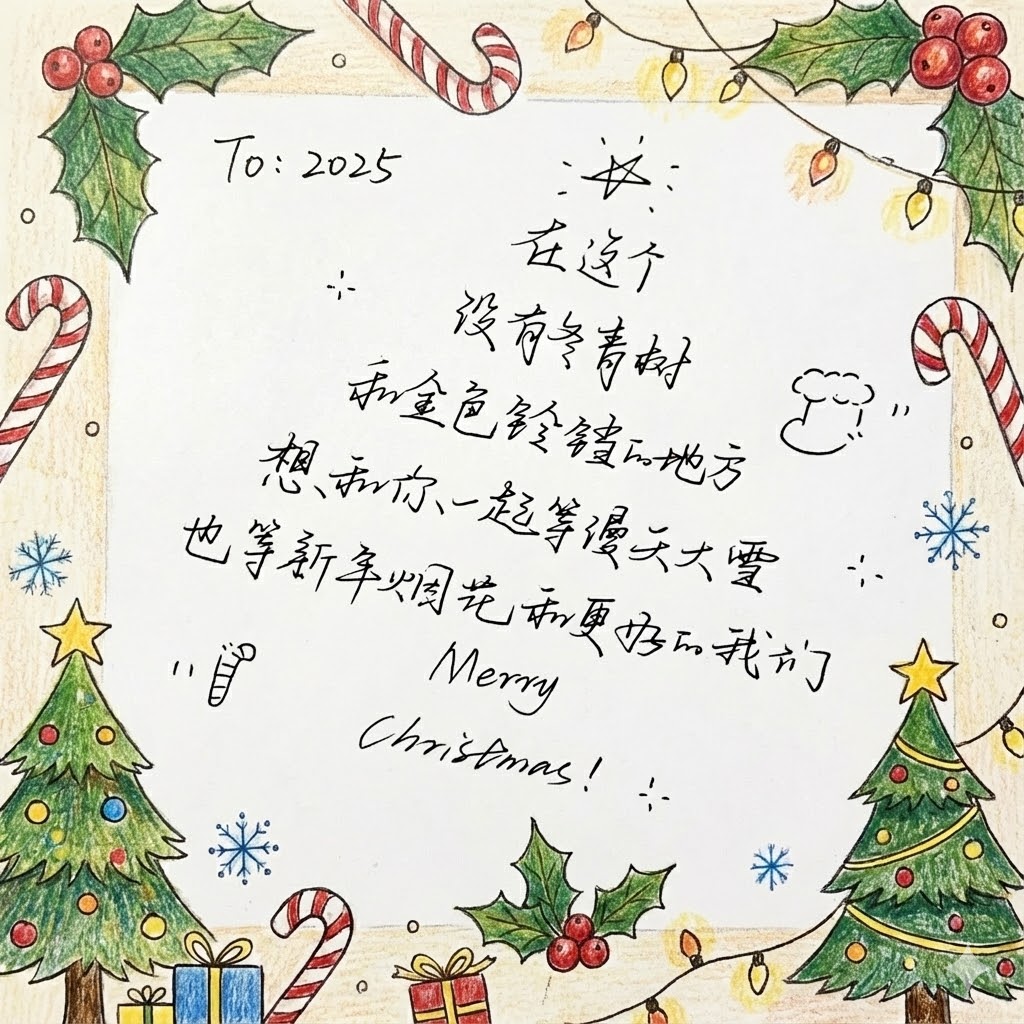 To: 2025
在这个
没有冬青树
和金色铃铛的地方
想和你一起等漫天大雪
也等新年烟花和更好的我们
Merry
Christmas!